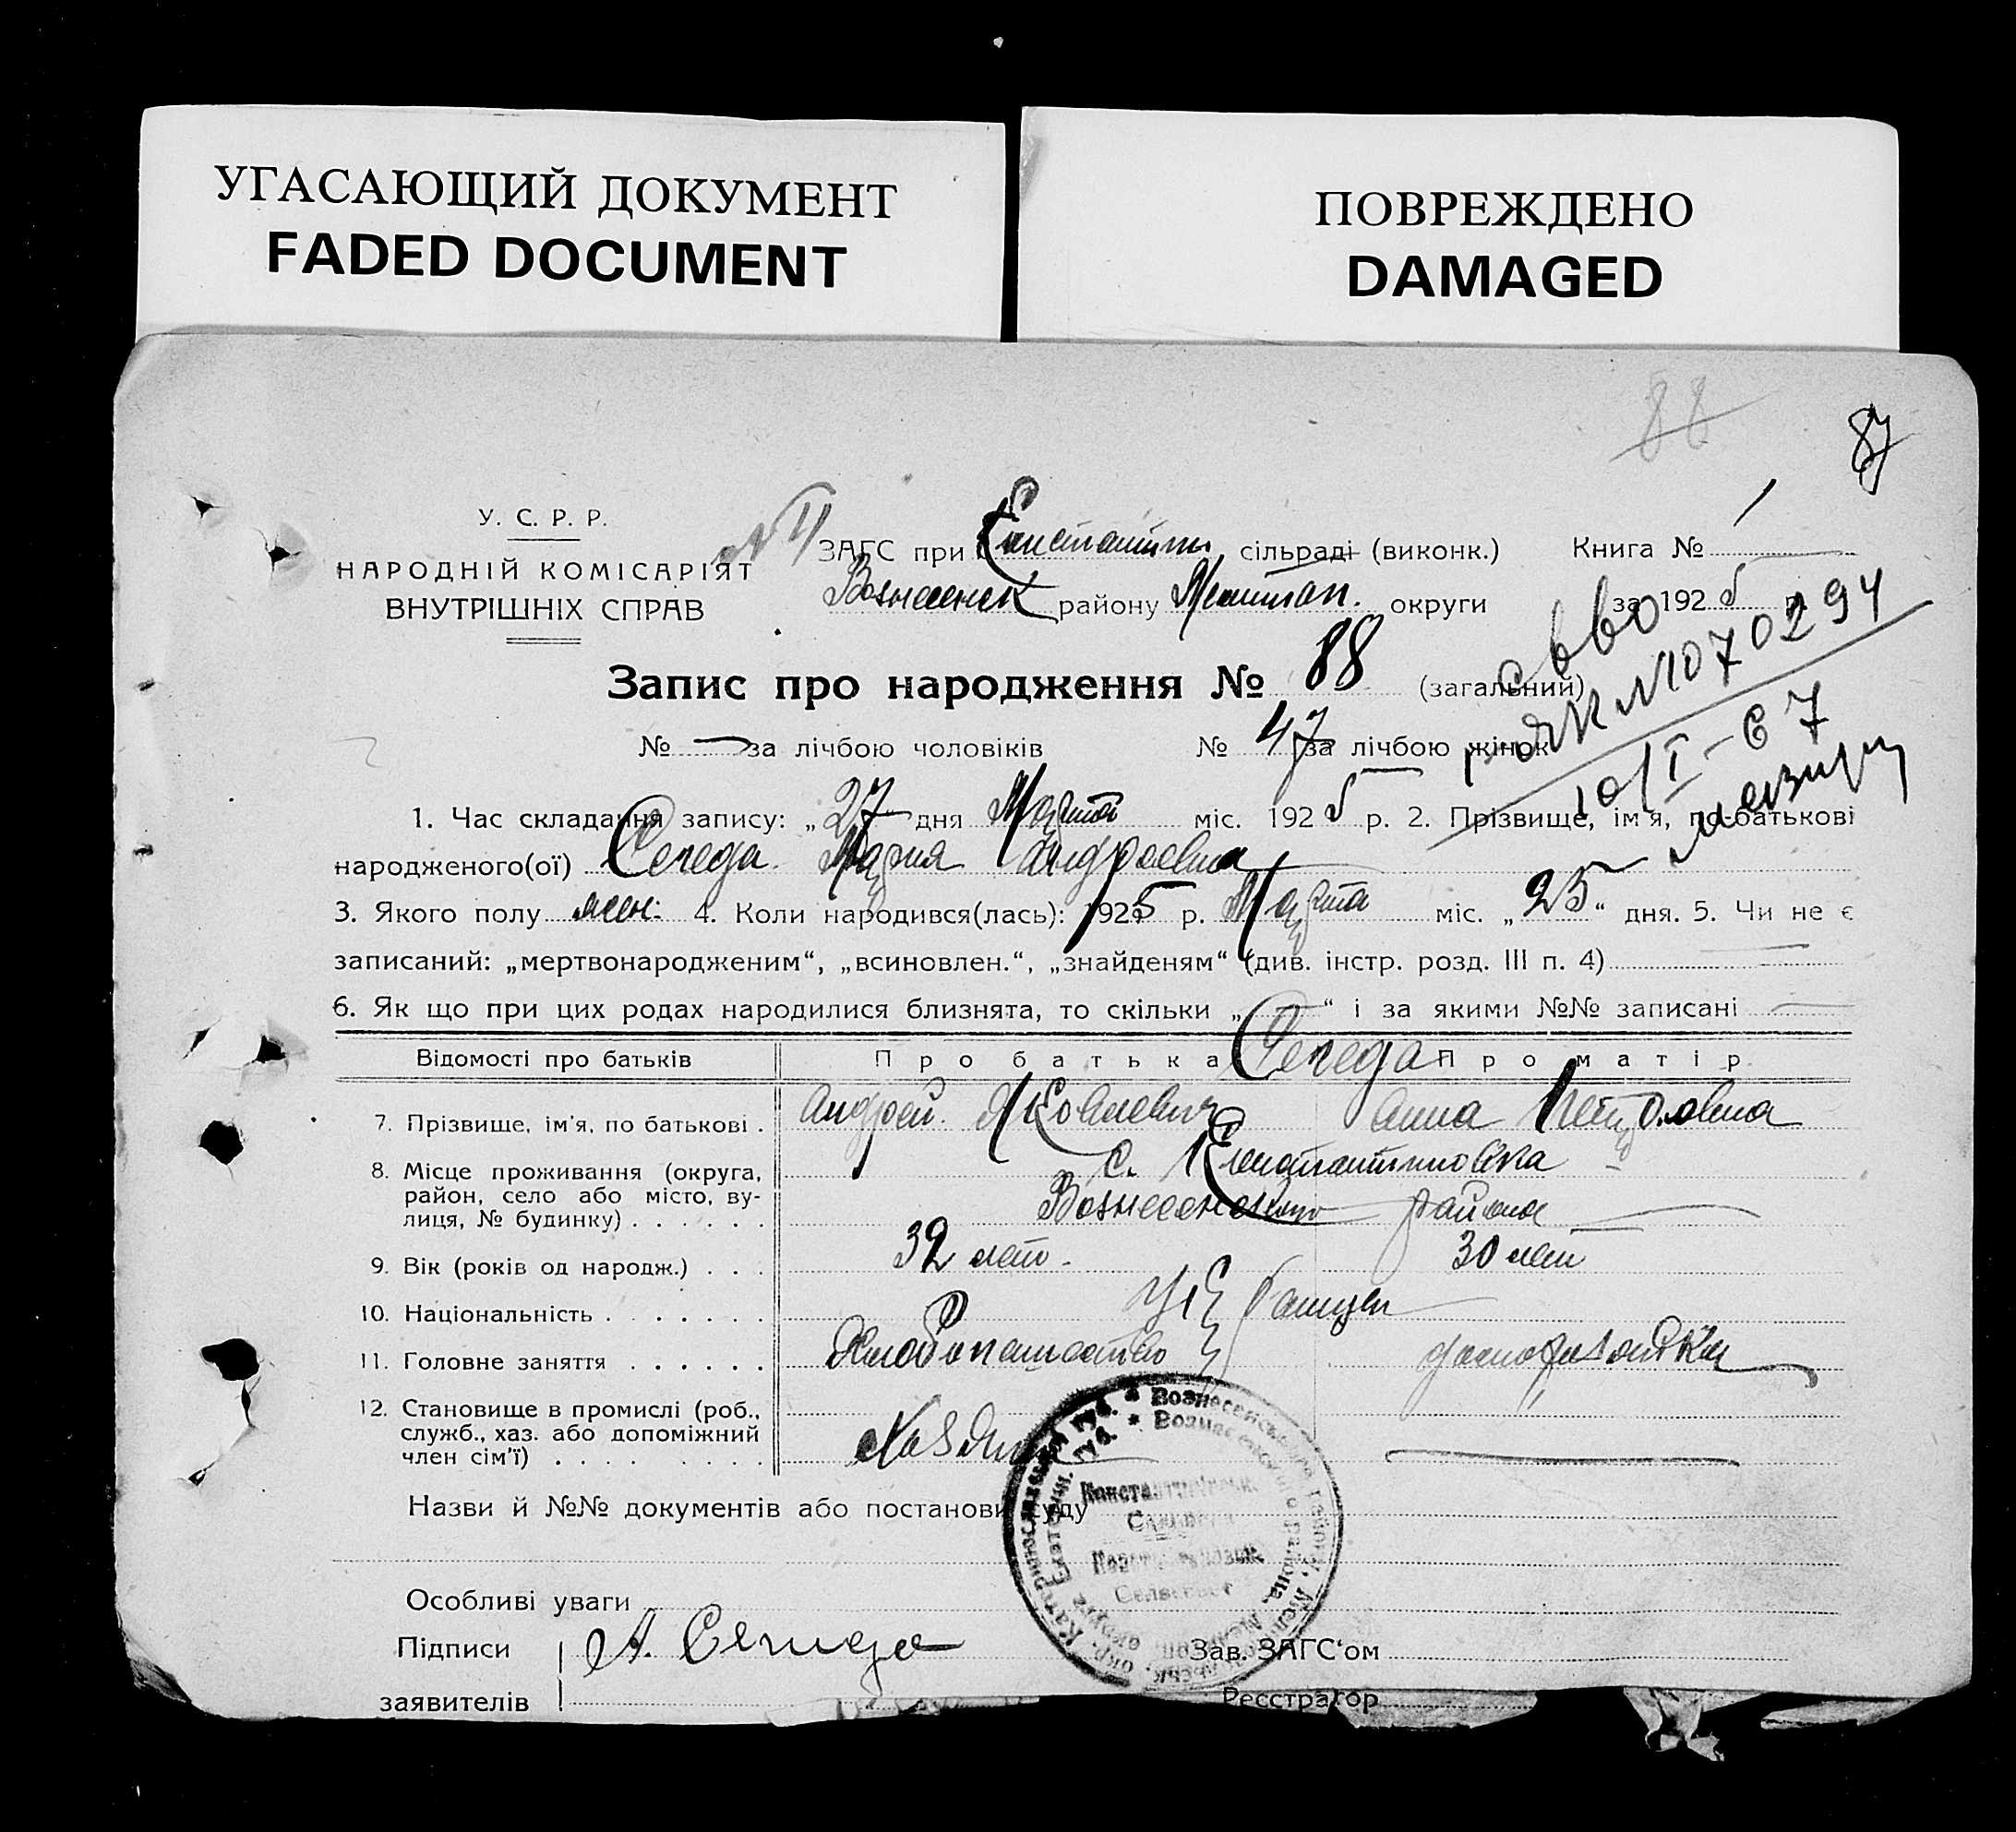 УГАСАЮЩИЙ ДОКУМЕНТ
FADED DOCUMENT
ПОВРЕЖДЕНО
DAMAGED
88
87
У. С. Р. Р.
НАРОДНІЙ КОМІСАРІЯТ
ВНУТРІШНІХ СПРАВ
ЗАГС при сільраді (виконк.) Книга №
Вознесенск району Мелитоп. округи за 1925 р.
Запис про народження № 88 (загальний)
№ — за лічбою чоловіків № 47 за лічбою жінок
№1070294
10/I-67
1. Час складання запису: „27 дня Марта міс. 1925 р. 2. Прізвище, ім'я, по-батькові
народженого(ої) Середа Мария Андреевна
3. Якого полу жен. 4. Коли народився(лась): 1925 р. Марта міс. „25“ дня. 5. Чи не є
записаний: „мертвонародженим“, „всиновлен.“, „знайденям“ (див. інстр. розд. III п. 4)
6. Як що при цих родах народилися близнята, то скільки „—“ і за якими №№ записані —
Відомості про батьків Про батька Середа Про матір
7. Прізвище, ім'я, по батькові . Андрей Яковлевич Анна Петровна
8. Місце проживання (округа, с. Константиновка
район, село або місто, ву- Вознесенского района
лиця, № будинку) . . . . . .
9. Вік (років од народж.) . . . 32 лет. 30 лет
10. Національність . . . . . . . Украинцы
11. Головне заняття . . . . . . Хлебопашество домохозяйка
12. Становище в промислі (роб.,
служб., хаз. або допоміжний Хозяин
член сім'ї) . . . . . . . . .
Назви й №№ документів або постанови суду
Особливі уваги
Підписи А. Середа Зав. ЗАГС‘ом
заявителів Реєстратор